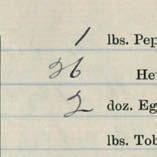 1 lbs. Pep
26 He
2 doz. Eg
lbs. Tob